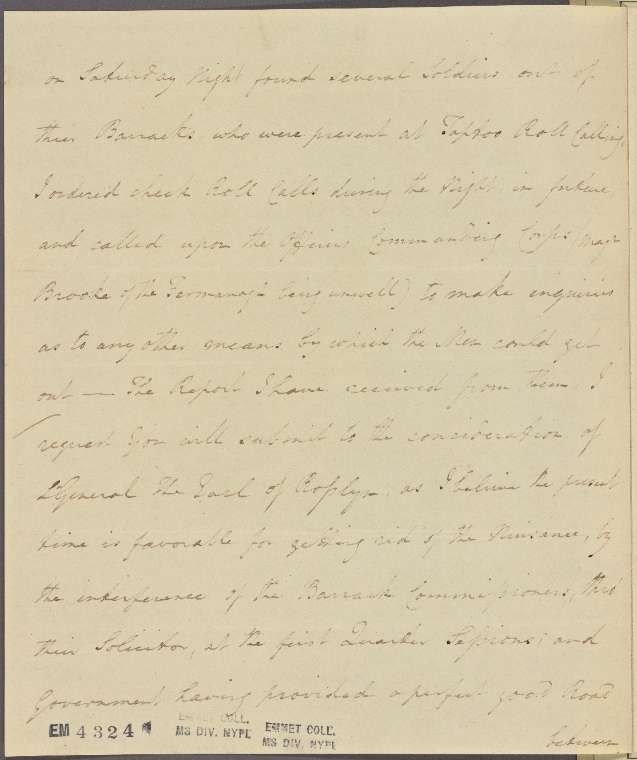 on Saturday Night found several Soldiers out of
their Barracks, who were present at Taptoo Roll Calling,
I ordered check Roll Calls during the Night, in future,
and called upon the Officers Commanding Corps (Major
Brooke of the Fermanagh being unwell) to make inquiries
as to any other means by which the Men could get
out — The Report I have received from them, I
request You will submit to the consideration of
Lt General The Earl of Rosslyn, as I believe the present
time is favorable for getting rid of the Nuisance, by
the interference of the Barrack Commissioners, thro'
their Solicitor, at the first Quarter Sessions; and
Government having provided a perfect good Road
between
EM 4324
EMMET COLL.
MS DIV. NYPL
EMMET COLL.
MS DIV. NYPL